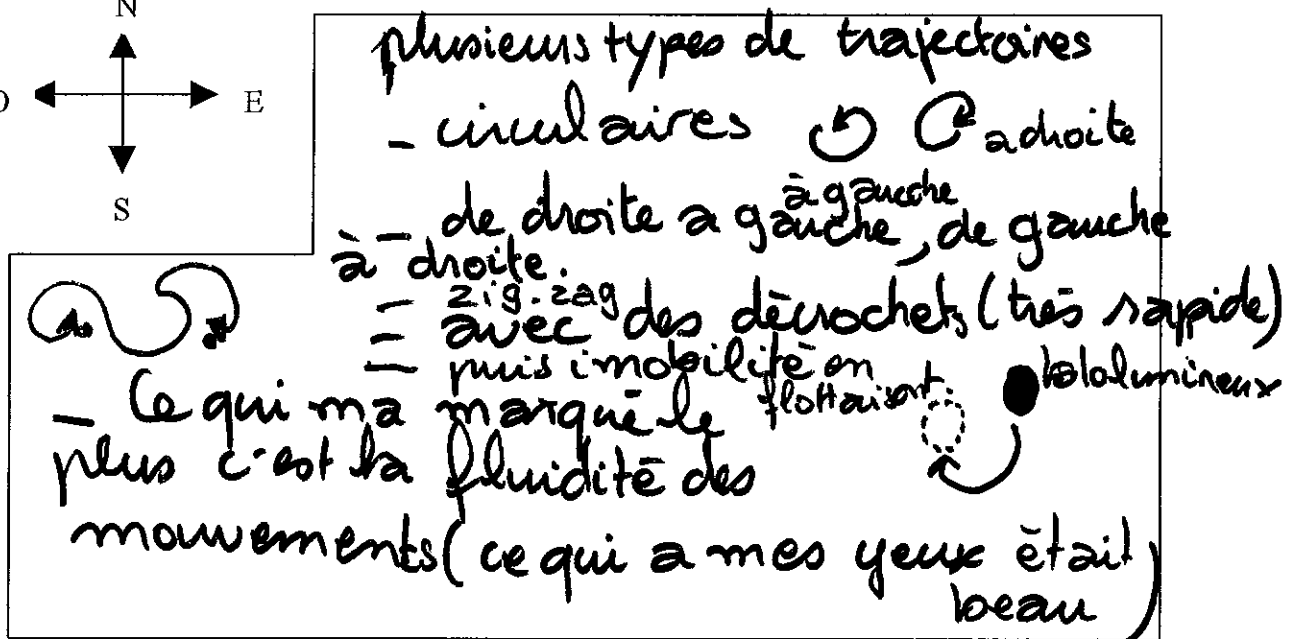 N
O E
S
plusieurs types de trajectoires
- circulaires a droite
à gauche
- de droite a gauche, de gauche
à droite.
- zig-zag
= avec des décrochets (très rapide)
- puis imobilité en
flottaisant.
halolumineux
- Ce qui ma marqué le
plus c'est la fluidité des
mouvements (ce qui a mes yeux était
beau)